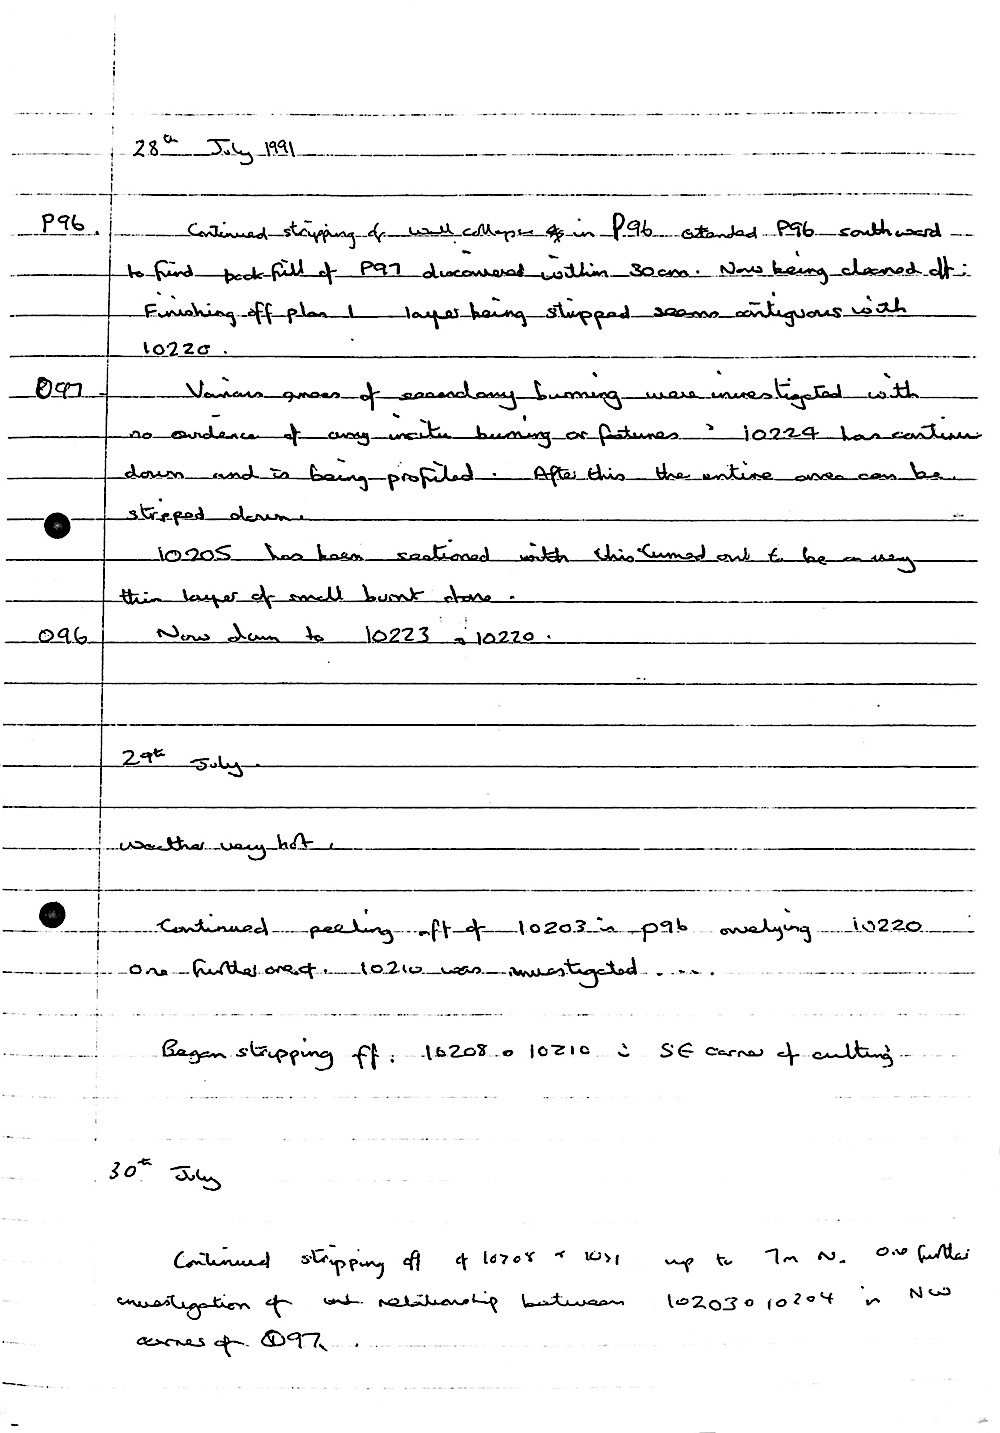 28th July 1991
P96. Continued stripping of wall collapse in P96 extended P96 southward
to find back fill of P97 discovered within 30cm. Now being cleaned off:
Finishing off plan 1 layer being stripped seems contiguous with
10220.
O97 Various areas of secondary burning were investigated with
no evidence of any insitu burning or features 10224 has continue
down and is being profiled. After this the entire area can be
stripped down.
10205 has been sectioned with this turned out to be a very
thin layer of small burnt stone.
O96 Now down to 10223 10220.
29th July.
Weather very hot.
Continued peeling off of 10203 in P96 overlying 10220
one further area of. 10210 was investigated ....
Began stripping off: 10208 10210 in SE corner of cutting
30th July
Continued stripping off of 10208 up to 7m N. One further
investigation of relationship between 10203 10204 in NW
corner of O97.